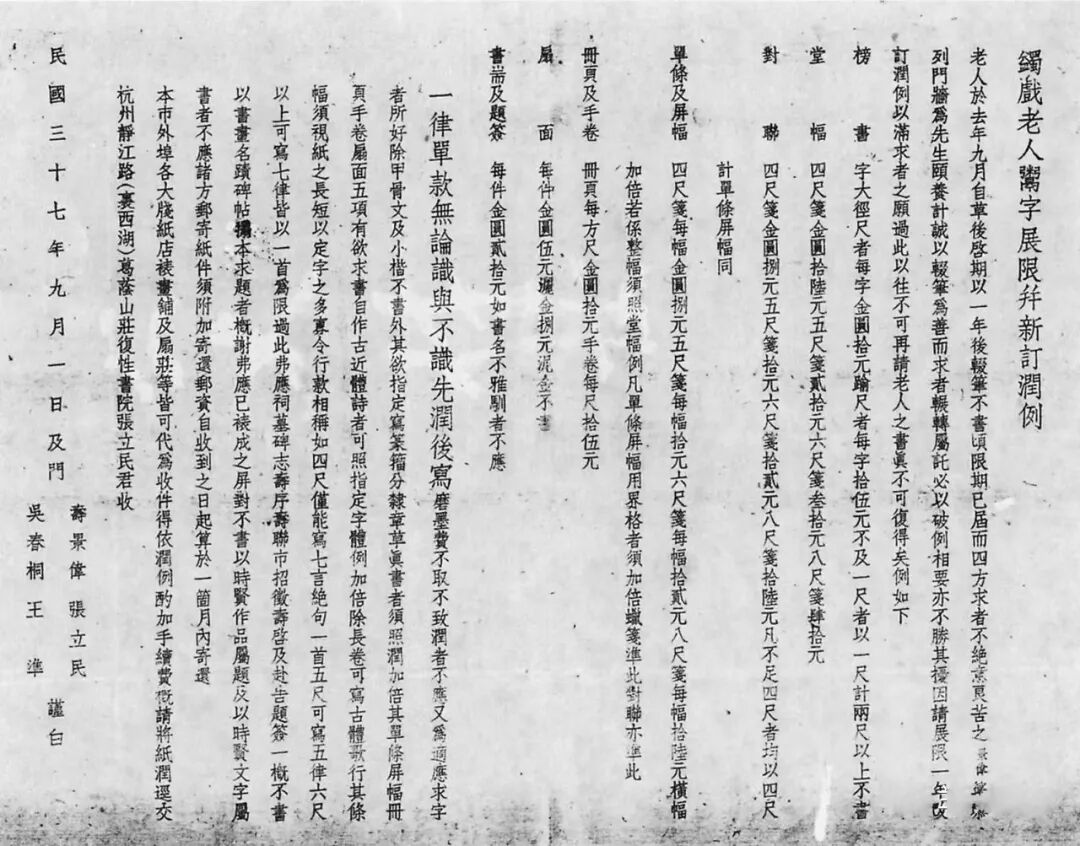 蠲戲老人鬻字展限并新訂潤例
老人於去年九月自草後啓期以一年後輟筆不書頃限期已屆而四方求者不絕意良苦之景偉等忝
列門牆爲先生頤養計誠以輟筆爲善而求者輾轉屬託必以破例相要亦不勝其擾因請展限一年改
訂潤例以滿求者之願過此以往不可再請老人之書眞不可復得矣例如下
榜書 字大徑尺者每字金圓拾元踰尺者每字拾伍元不及一尺者以一尺計兩尺以上不書
堂幅 四尺箋金圓拾陸元五尺箋貳拾元六尺箋叁拾元八尺箋肆拾元
對聯 四尺箋金圓捌元五尺箋拾元六尺箋拾貳元八尺箋拾陸元凡不足四尺者均以四尺
計單條屏幅同
單條及屏幅 四尺箋每幅金圓捌元五尺箋每幅拾元六尺箋每幅拾貳元八尺箋每幅拾陸元橫幅
加倍若係整幅須照堂幅例凡單條屏幅用界格者須加倍蠟箋準此對聯亦準此
冊頁及手卷 冊頁每方尺金圓拾元手卷每尺拾伍元
扇面 每件金圓伍元灑金捌元泥金不書
書耑及題簽 每件金圓貳拾元如書名不雅馴者不應
一律單款無論識與不識先潤後寫磨墨費不取不致潤者不應又爲適應求字
者所好除甲骨文及小楷不書外其欲指定寫篆籀分隸章草眞書者須照潤加倍其單條屏幅冊
頁手卷扇面五項有欲求書自作古近體詩者可照指定字體例加倍除長卷可寫古體歌行其條
幅須視紙之長短以定字之多寡令行款相稱如四尺僅能寫七言絕句一首五尺可寫五律六尺
以上可寫七律皆以一首爲限過此弗應祠墓碑志壽序壽聯市招徵壽啓及赴告題簽一概不書
以書畫名蹟碑帖搨本求題者概謝弗應已裱成之屏對不書以時賢作品屬題及以時賢文字屬
書者不應諸方郵寄紙件須附加寄還郵資自收到之日起算於一箇月內寄還
本市外埠各大牋紙店裱畫舖及扇莊等皆可代爲收件得依潤例酌加手續費概請將紙潤逕交
杭州靜江路（裏西湖）葛蔭山莊復性書院張立民君收
民國三十七年九月一日及門
壽景偉 張立民
吳春桐 王準 謹白